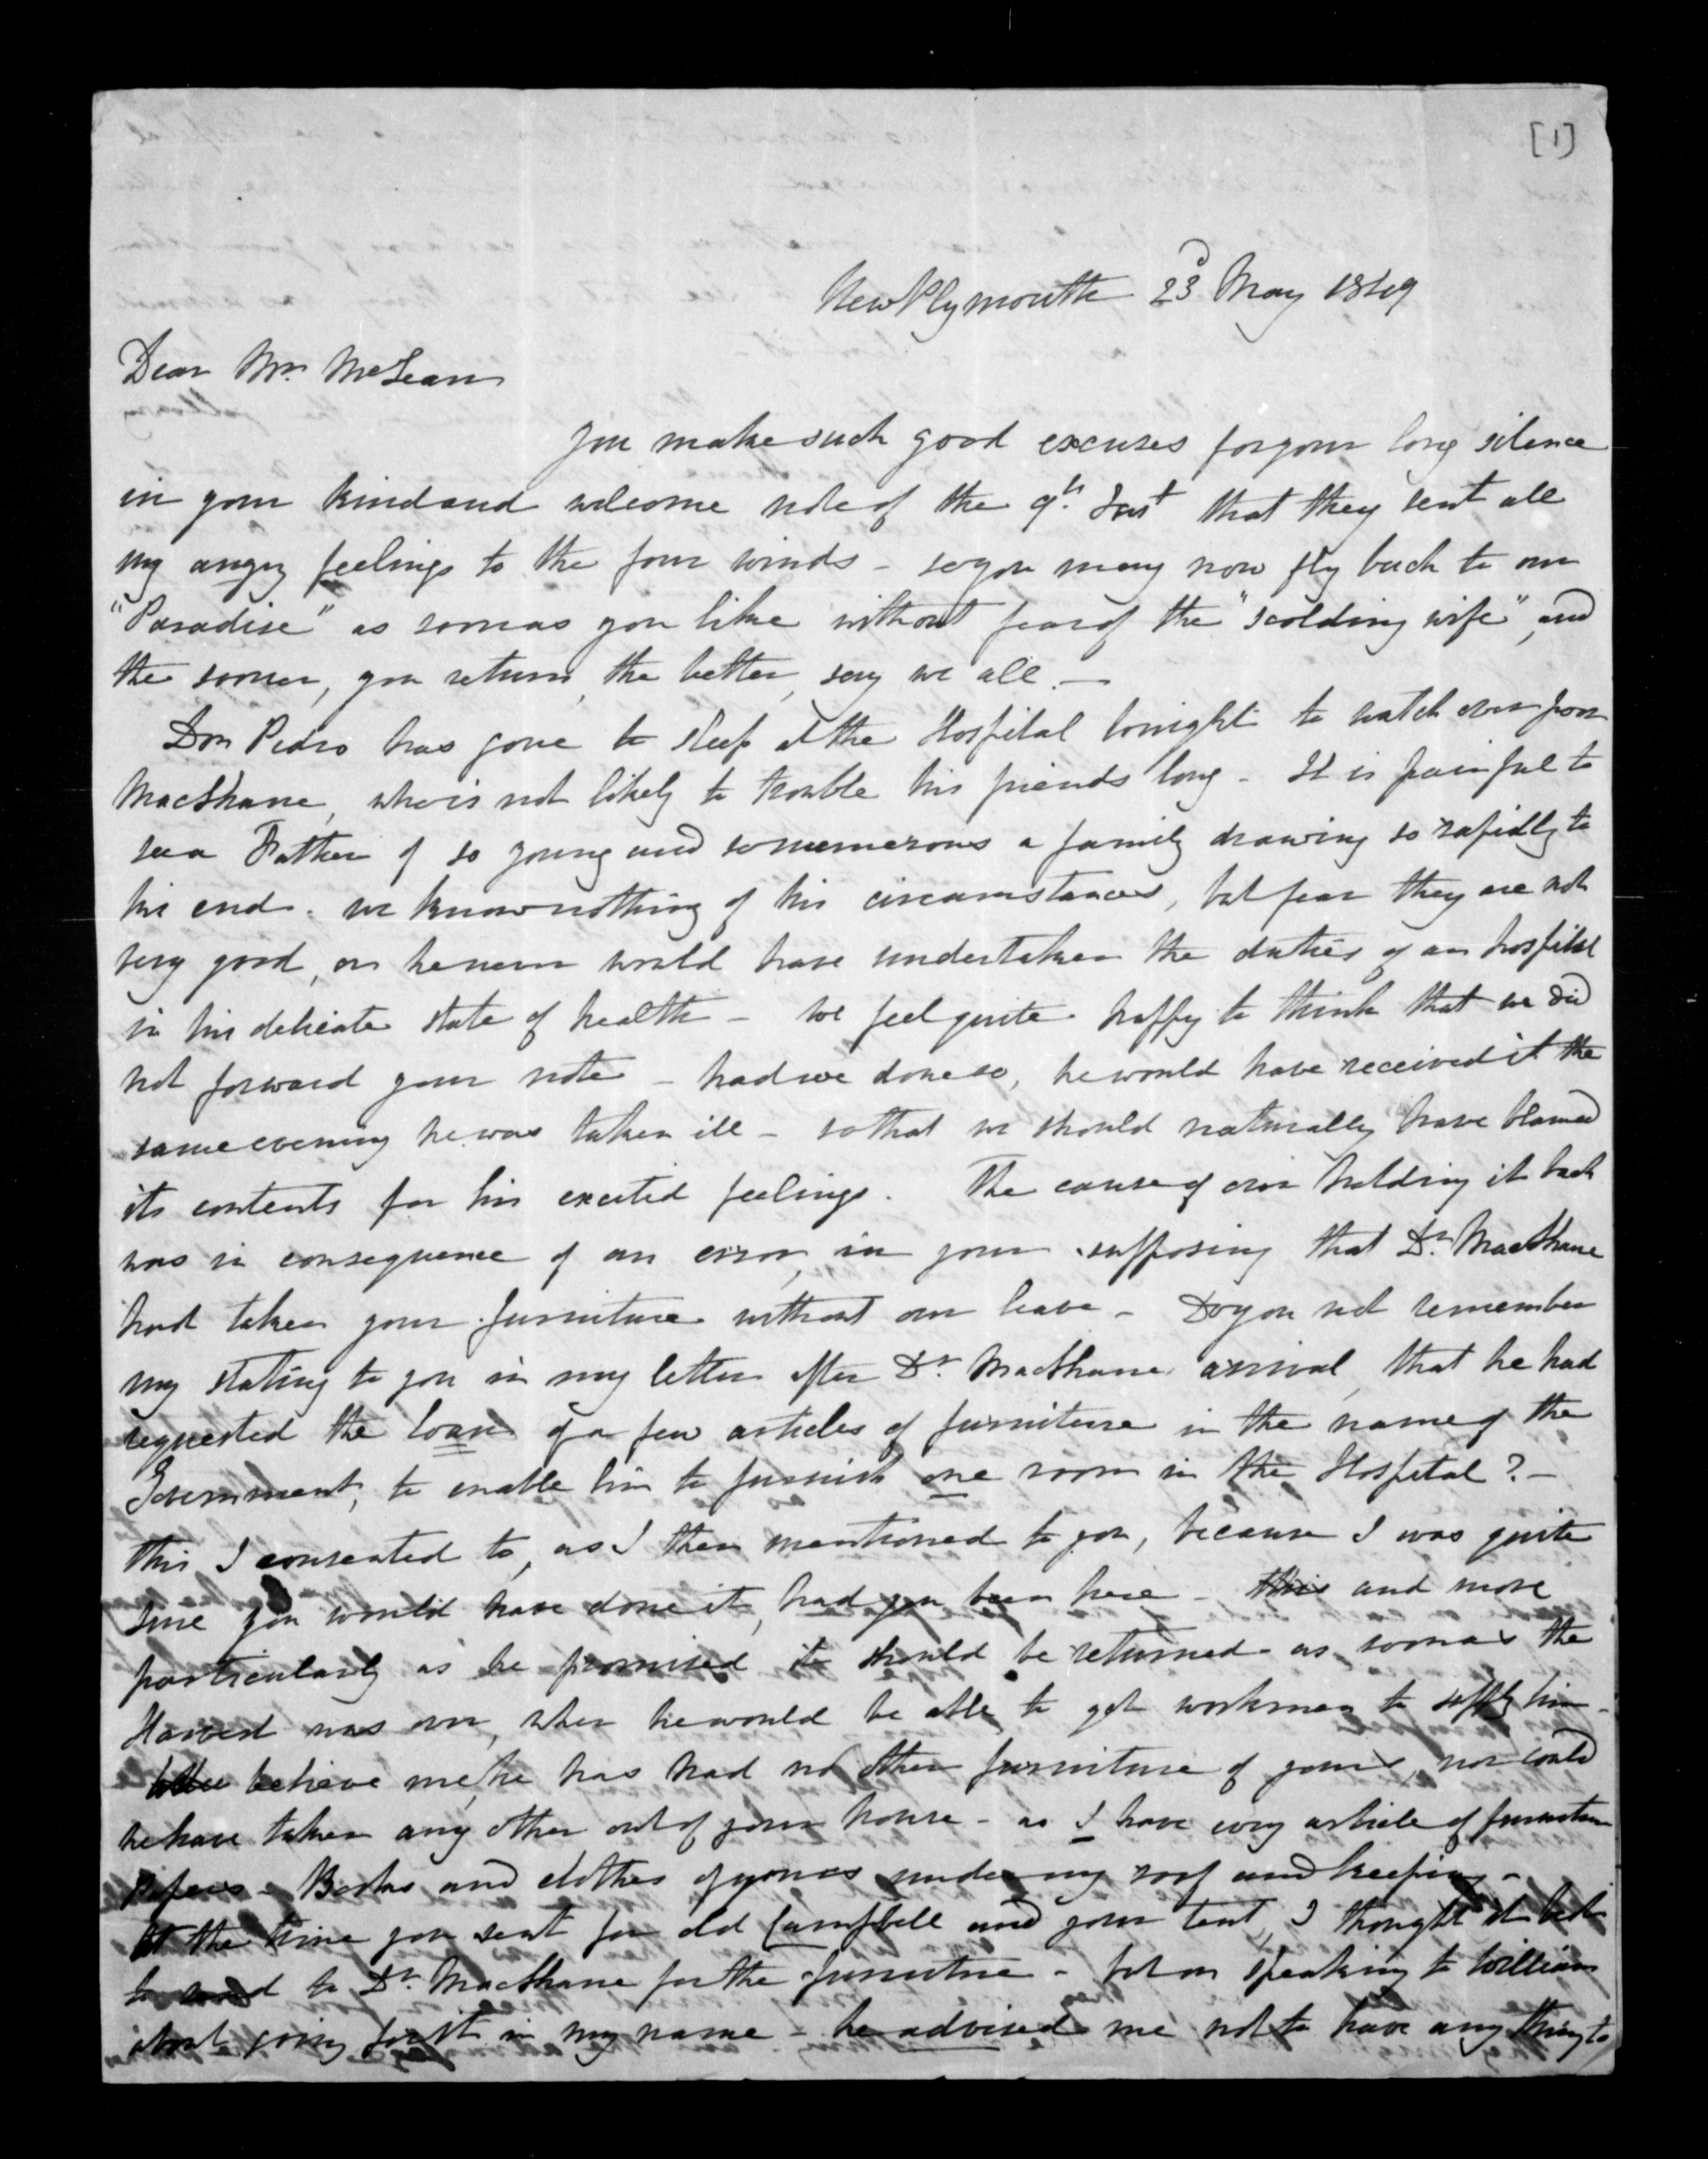 [1]
New Plymouth 23d May 1849
Dear Mr. McLean
You make such good excuses for your long silence
in your kind and welcome note of the 9th. Inst that they sent all
my angry feelings to the four winds - so you may now fly back to our
"Paradise" as soon as you like without fear of the "scolding wife", and
the sooner, you return, the better, say we all. —
Don Pedro has gone to sleep at the Hospital tonight to watch over poor
MacShane, who is not likely to trouble his friends long - It is painful to
see a Father of so young and so numerous a family drawing so rapidly to
his end. we know nothing of his circumstances, but fear they are not
very good, or he never would have undertaken the duties of an hospital
in his delicate state of health - We feel quite happy to think that we did
not forward your note - had we done so, he would have received it the
same evening he was taken ill - so that we should naturally have blamed
its contents for his excited feelings. The cause of our holding it back
was in consequence of an error, in your supposing that Dr. MacShane
had taken your furniture without our leave - Do you not remember
my stating to you in my letter after Dr. MacShane arrival, that he had
requested the loan of a few articles of furniture in the name of the
Government, to enable him to furnish one room in the Hospital? -
this I consented to, as I then mentioned to you, because I was quite
sure you would have done it, had you been here - this and more
particularly as he promised it should be returned as soon as the
Harvest was over, when he would be able to get workmen to supply him -
believe me, he has had no other furniture of yours, nor could
he have taken any other out of your house - as I have every article of furniture
Papers - Books and clothes of yours under my roof and keeping -
At the time you sent for old Campbell and your tent, I thought it best
to send to Dr. MacShane for the furniture - but on speaking to William
about going for it in my name - he advised me not to have any thing to